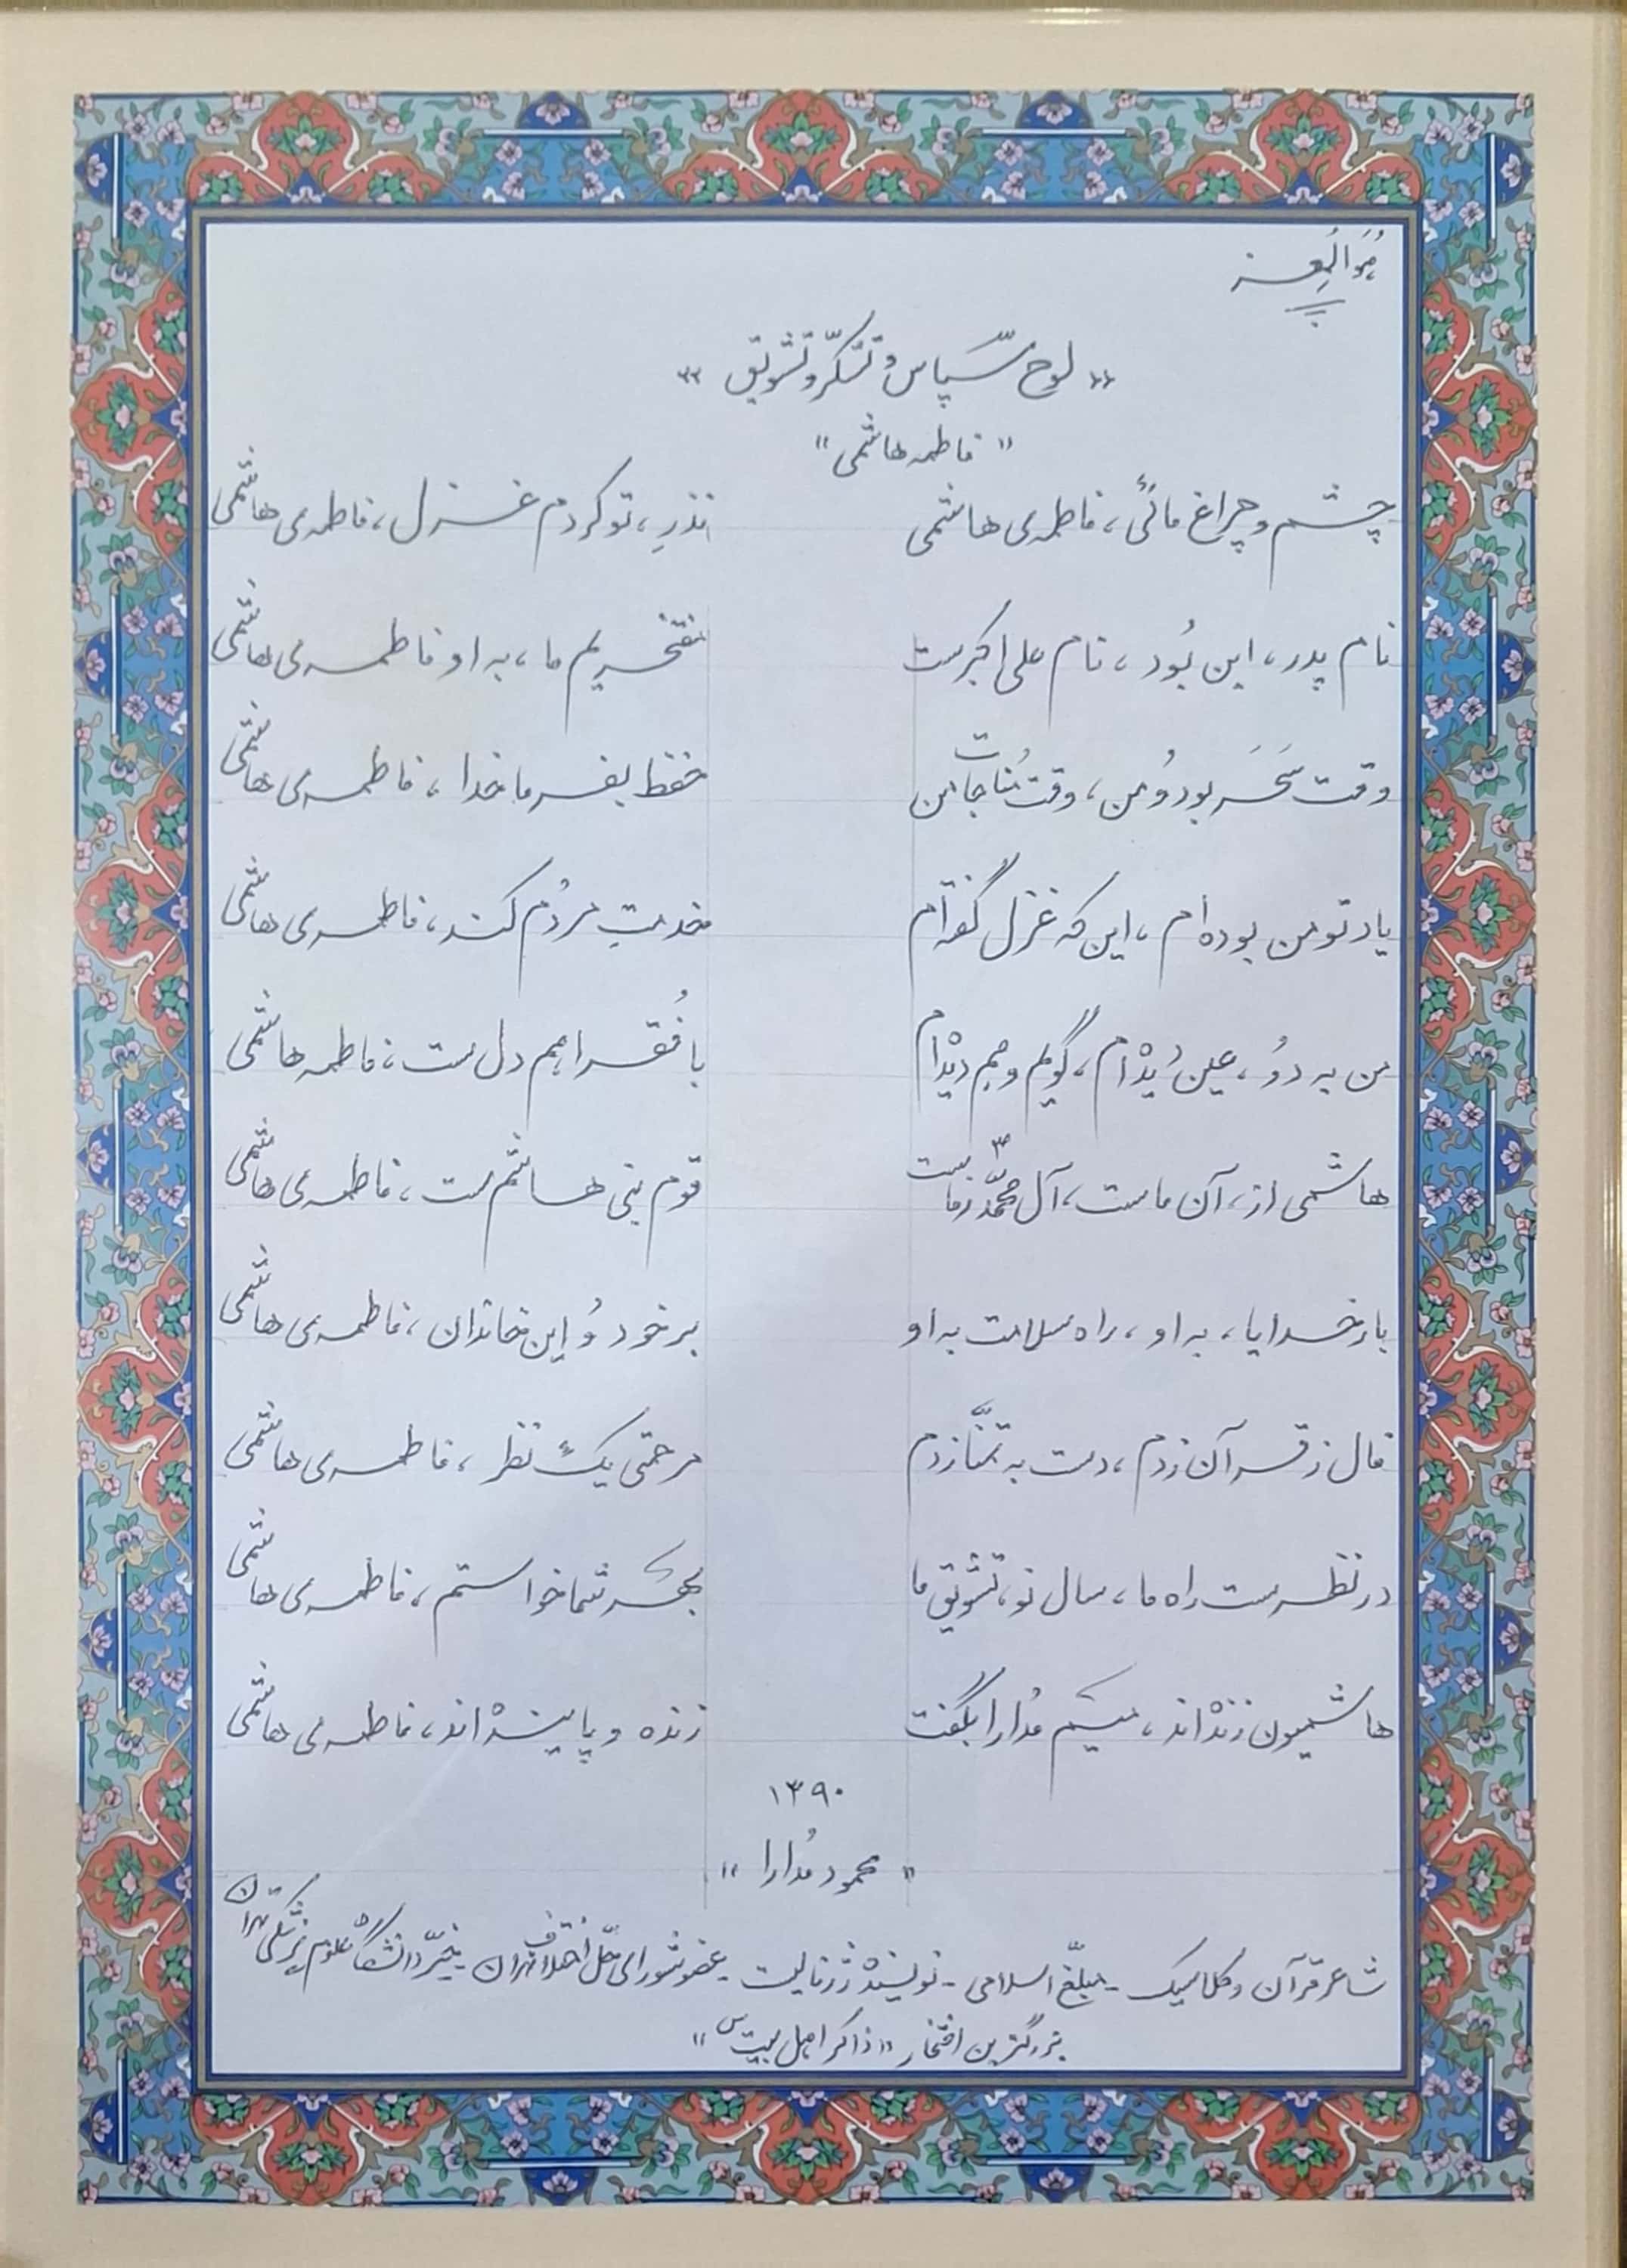 هُوَالمُعِز
«لوح سپاس و تشکّر و تشویق»
"فاطمه هاشمی"
چشم و چراغ مائی، فاطمه‌ی هاشمی نذرِ، تو کردم غزل، فاطمه‌ی هاشمی
نام پدر، این بُود، نام علی اکبرست مفتخریم ما، به او فاطمه‌ی هاشمی
وقت سَحَر بود وُ من، وقت مُناجات من حفظ بفرما خدا، فاطمه‌ی هاشمی
یاد تو من بوده‌ام، این که غزل گفته‌ام خدمتِ مردُم کند، فاطمه‌ی هاشمی
من به دوُ، عین دُیدْام، گویم و هم دیدْام با فُقرا هم دل ست، فاطمه هاشمی
هاشمی از، آن ماست، آل محمّد ص ز ماست قوم بنی هاشم ست، فاطمه‌ی هاشمی
بار خدایا، به او، راه سلامت به او بر خود وُ این خاندان، فاطمه‌ی هاشمی
فال ز قرآن زدم، دست به تمنّا زدم مرحمتی یک نظر، فاطمه‌ی هاشمی
در نظرست راه ما، سال نو، تشویق ما بهر شما خواستم، فاطمه‌ی هاشمی
هاشمیون زندْاند، میثم مُدارا بگفت زنده و پایندْاند، فاطمه‌ی هاشمی
۱۳۹۰
"محمود مُدارا"
شاعر قرآن و کلاسیک - مبلّغ اسلامی - نویسندْ ژرنالیست - عضو شورای حل اختلاف تهران - خیّر دانشگاه علوم پزشکی تهران
بزرگترین افتخار "ذاکر اهل بیت س"